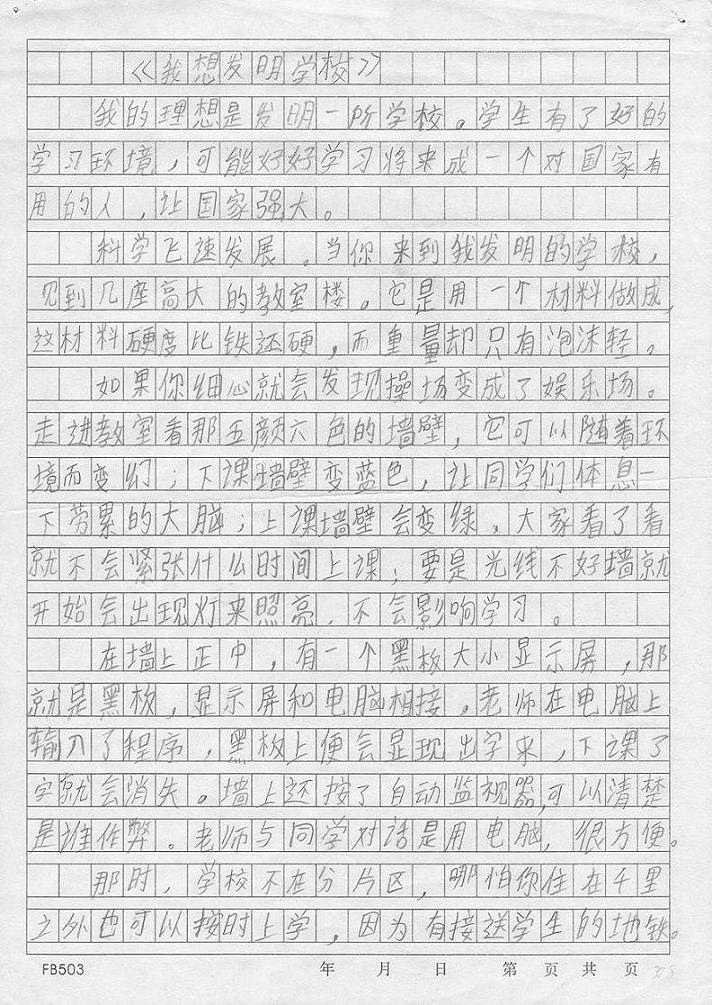 《我想发明学校》
我的理想是发明一所学校。学生有了好的
学习环境，可能好好学习将来成一个对国家有
用的人，让国家强大。
科学飞速发展。当你来到我发明的学校，
见到几座高大的教室楼。它是用一个材料做成，
这材料硬度比铁还硬，而重量却只有泡沫轻。
如果你细心就会发现操场变成了娱乐场。
走进教室看那五颜六色的墙壁，它可以随着环
境而变幻；下课墙壁变蓝色，让同学们体息一
下劳累的大脑；上课墙壁会变绿，大家看了看
就不会紧张什么时间上课；要是光线不好墙就
开始会出现灯来照亮，不会影响学习。
在墙上正中，有一个黑板大小显示屏，那
就是黑板，显示屏和电脑相接。老师在电脑上
输入了程序，黑板上便会显现出字来，下课了
字就会消失。墙上还按了自动监视器，可以清楚
是谁作弊。老师与同学对话是用电脑，很方便。
那时，学校不在分片区，哪怕你住在千里
之外也可以按时上学，因为有接送学生的地铁。
FB503 年 月 日 第 页 共 页